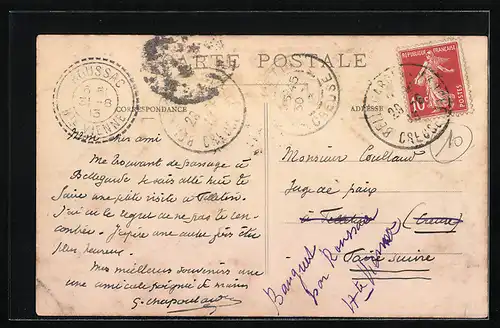 CARTE POSTALE
CORRESPONDANCE
ADRESSE
ROUSSAC
Hte VIENNE
CREUSE
CREUSE
BELLEGARDE
CREUSE
REPUBLIQUE FRANCAISE
10c
10
Mon cher ami
Me trouvant de passage à
Bellegarde je suis allé hier
faire une petite visite à
J'ai eu le regret de ne pas te ren-
contrer. J'espère une autre fois être
plus heureux.
Mes meilleurs souvenirs avec
une amicale poignée de mains
G. Chapoulaud
Monsieur Coullaud
Juge de paix
à (Creuse)
Faire suivre
par Roussac
Hte Vienne